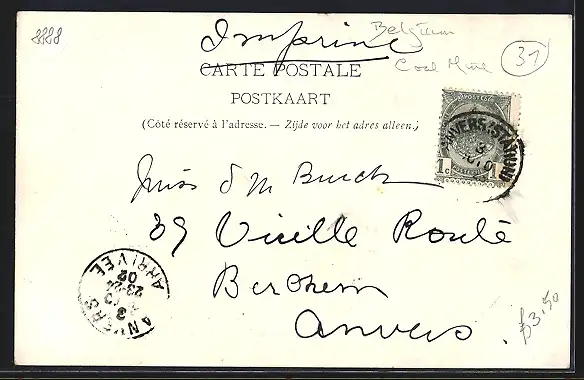 3328
Imprimé
Belgium
Coal Mine
31
CARTE POSTALE
POSTKAART
(Côté réservé à l'adresse. — Zijde voor het adres alleen.)
POSTES
1c
Miss E M Burch
39 Vieille Route
Berchem
Anvers.
ANVERS
3
23-24
02
ARRIVÉE
£3.50